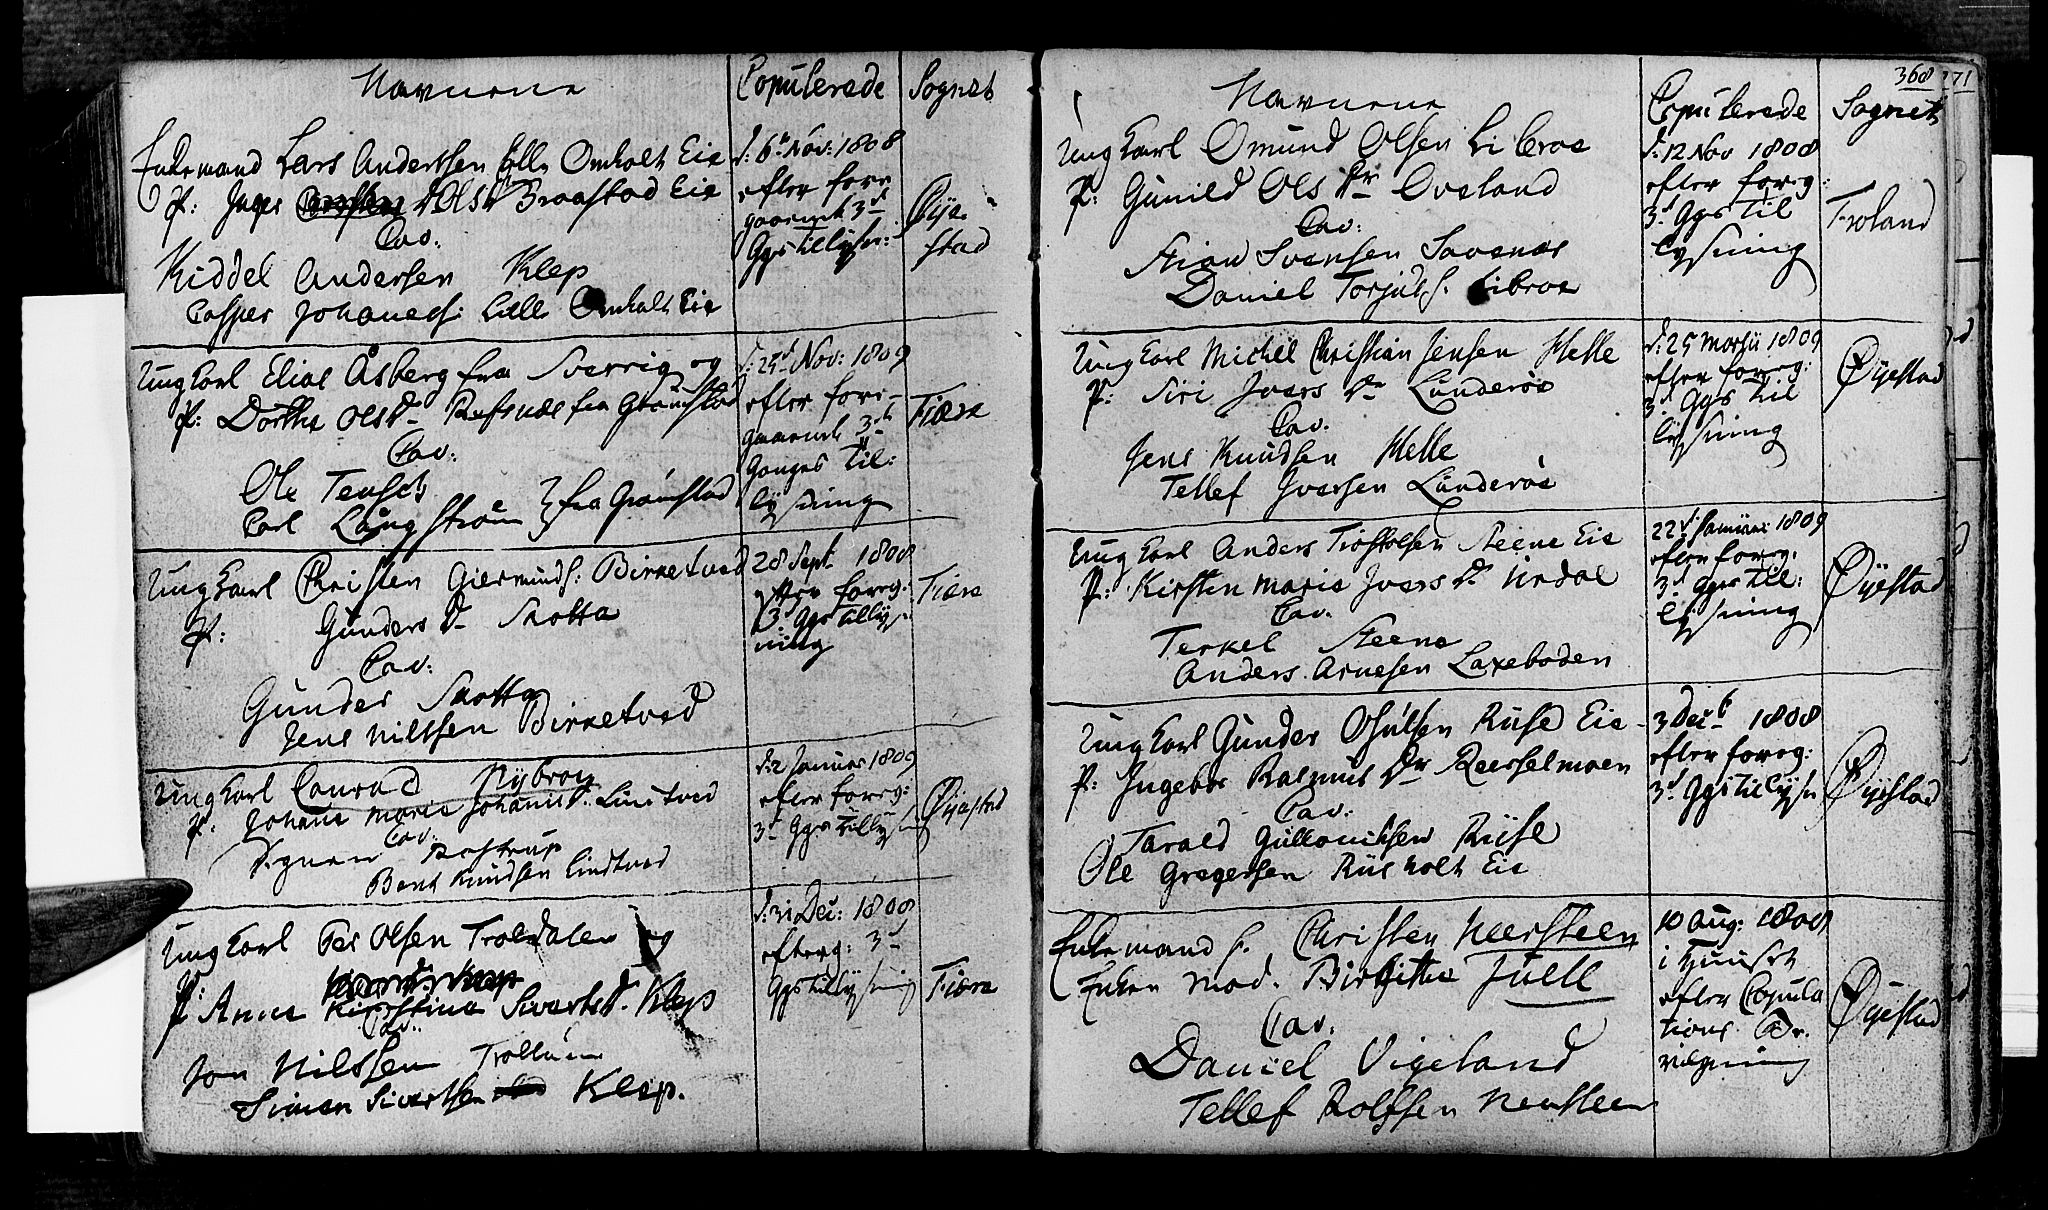 Navnene
Copulerede
Sognet
Enkemand Lars Anderssen Lille Omholt Eie
P: Inger Ols D Braastad Eie
Cav:
Kiddel Andersen Klep
Casper Johaness: Lille Omholt Eie
d: 6te Nov: 1808
efter fore
gaaende 3de
Ggs tillysn:
Øye
stad
Ungkarl Elias Åsberg fra Sverrig og
P: Dorthe Ols D. fra Grømstad
Cav:
Ole
Carl Langstrøm fra Grømstad
d: 25d Nov: 1809
efter fore-
gaaende 3de
Ganges til:
lysning
Fiære
Ungkarl Christen Giermunds: Birketved
P: Gunders D Skotta
Cav:
Gunder Skotta
Jens Nilssen Birketved
28 Sept 1808
efter foreg:
3d Ggs tillys-
ning
Fiære
Ungkarl Conrad Nybroe
P: Johane Marie Johanis D. Lindtved
Cav:
Rostrup
Bent Knudsen Lindtved
d: 2 Januar 1809
efter foreg:
3d Ggs tillysn
Øyestad
Ungkarl Per Olsen Troldalen og
P: Anne Kirstina Siverts D. Klep
Cav:
Jon Nilssen
Simon Sivertsen Klep.
d: 31 Dec: 1808
efterg: 3d
Ggs tillysning
Fiære
368
71
Navnene
Copulerede
Sognet
Ungkarl Omund Olsen Libroe
P: Gunild Ols Dr Oveland
Cav:
Stian Svensen Savenes
Daniel Torjuls. Libroe
d: 12 Nov 1808
efter foreg:
3d Ggs til
lysning
Froland
Ungkarl Michel Christian Jensen Helle
P: Siri Ivers Dr Lunderøe
Cav.
Jens Knudsen Helle
Tellef Iversen Lunderøe
d: 25 Martii 1809
efter foreg:
3d Ggs til
lysning
Øyestad
Ungkarl Anders Trostolsen Steene Eie
P: Kirsten Marie Ivers D Urdal
Cav:
Terkel Steene
Anders Arnesen Laxeboden
22d Januari 1809
efter foreg.
3d Ggs til:
lysning
Øyestad
Ungkarl Gunder Osulsen Ruse Eie
P: Ingebor Rasmus Dr Resselmoen
Cav:
Tarald Gullovsen Ruse
Ole Gregersen Rusholt Eie
3 Decb 1808
efter foreg:
3d Ggs tillysn
Øyestad
Enkemand S. Christen Neersteen
Enken Mad. Birgitta Juell
Cav.
Daniel Vigeland
Tellef Rolfsen Neersteen
10 Aug: 1808
i Huuset
efter Copula
tions Be-
vilgning
Øyestad